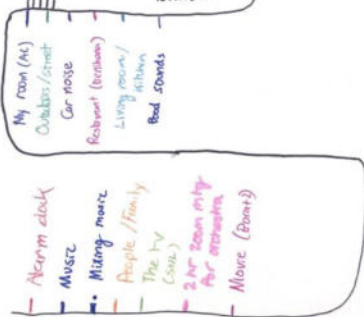 My room (AC)
Outdoors/street
Car noise
Restaurant (Benihana)
Living room/
kitchen
Food sounds
Alarm clock
Music
Mixing music
People/Family
The TV
(SNL)
2 hr zoom mtg
for orchestra
Movie (Borat 2)